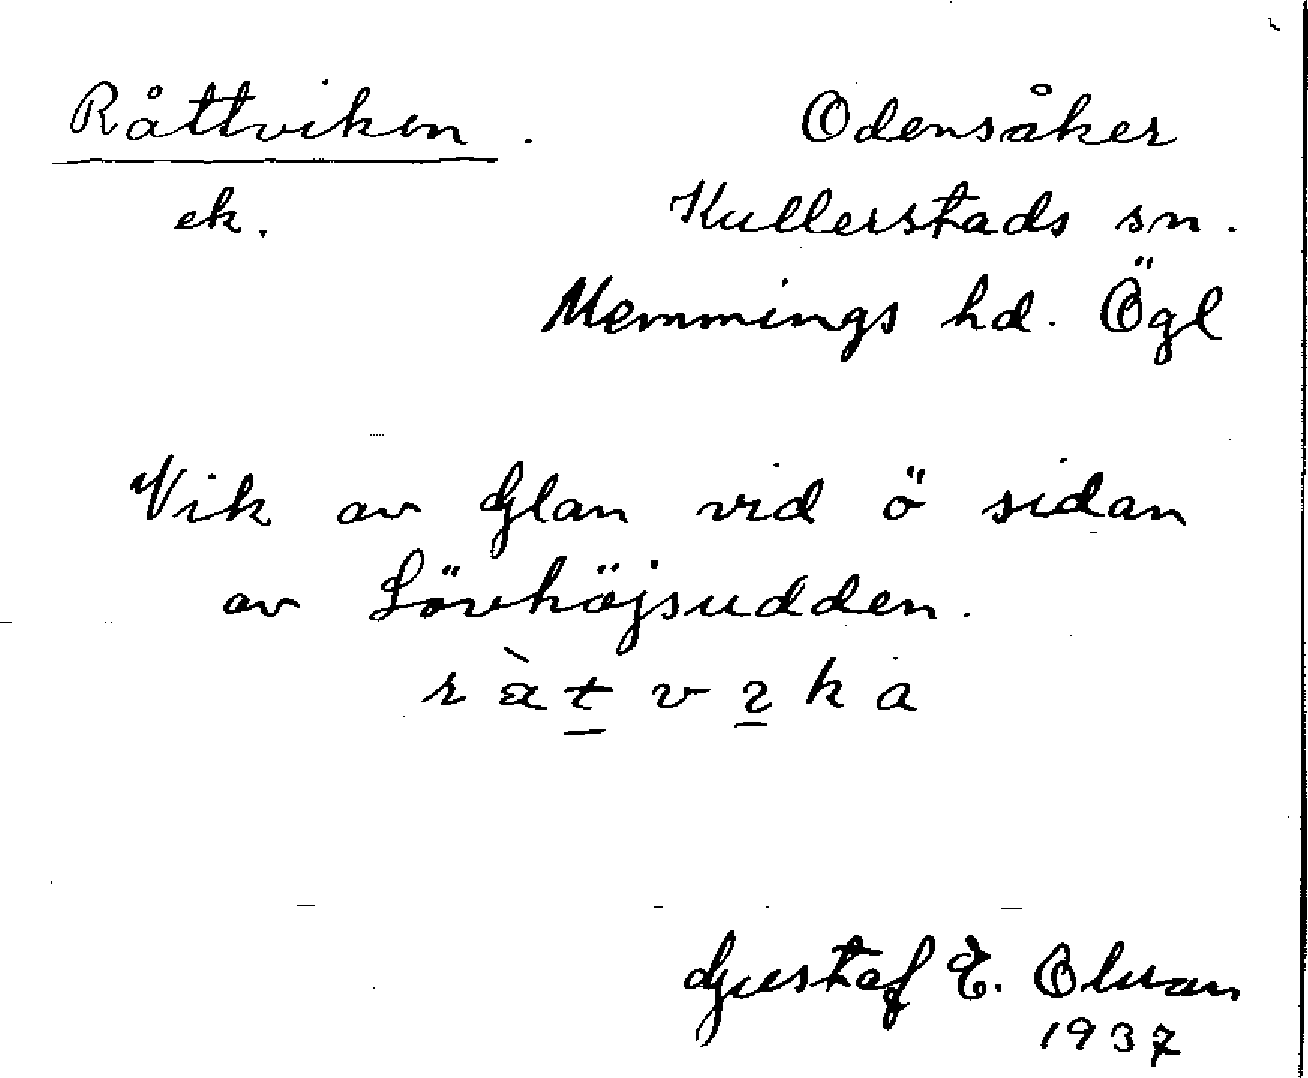 Råttviken. Odensåker
ek. Kullerstads sn.
Memmings hd. Ögl
Vik av Glan vid ö sidan
av Lövhöjsudden.
r à t v ı k a
Gustaf E. Olsson
1937